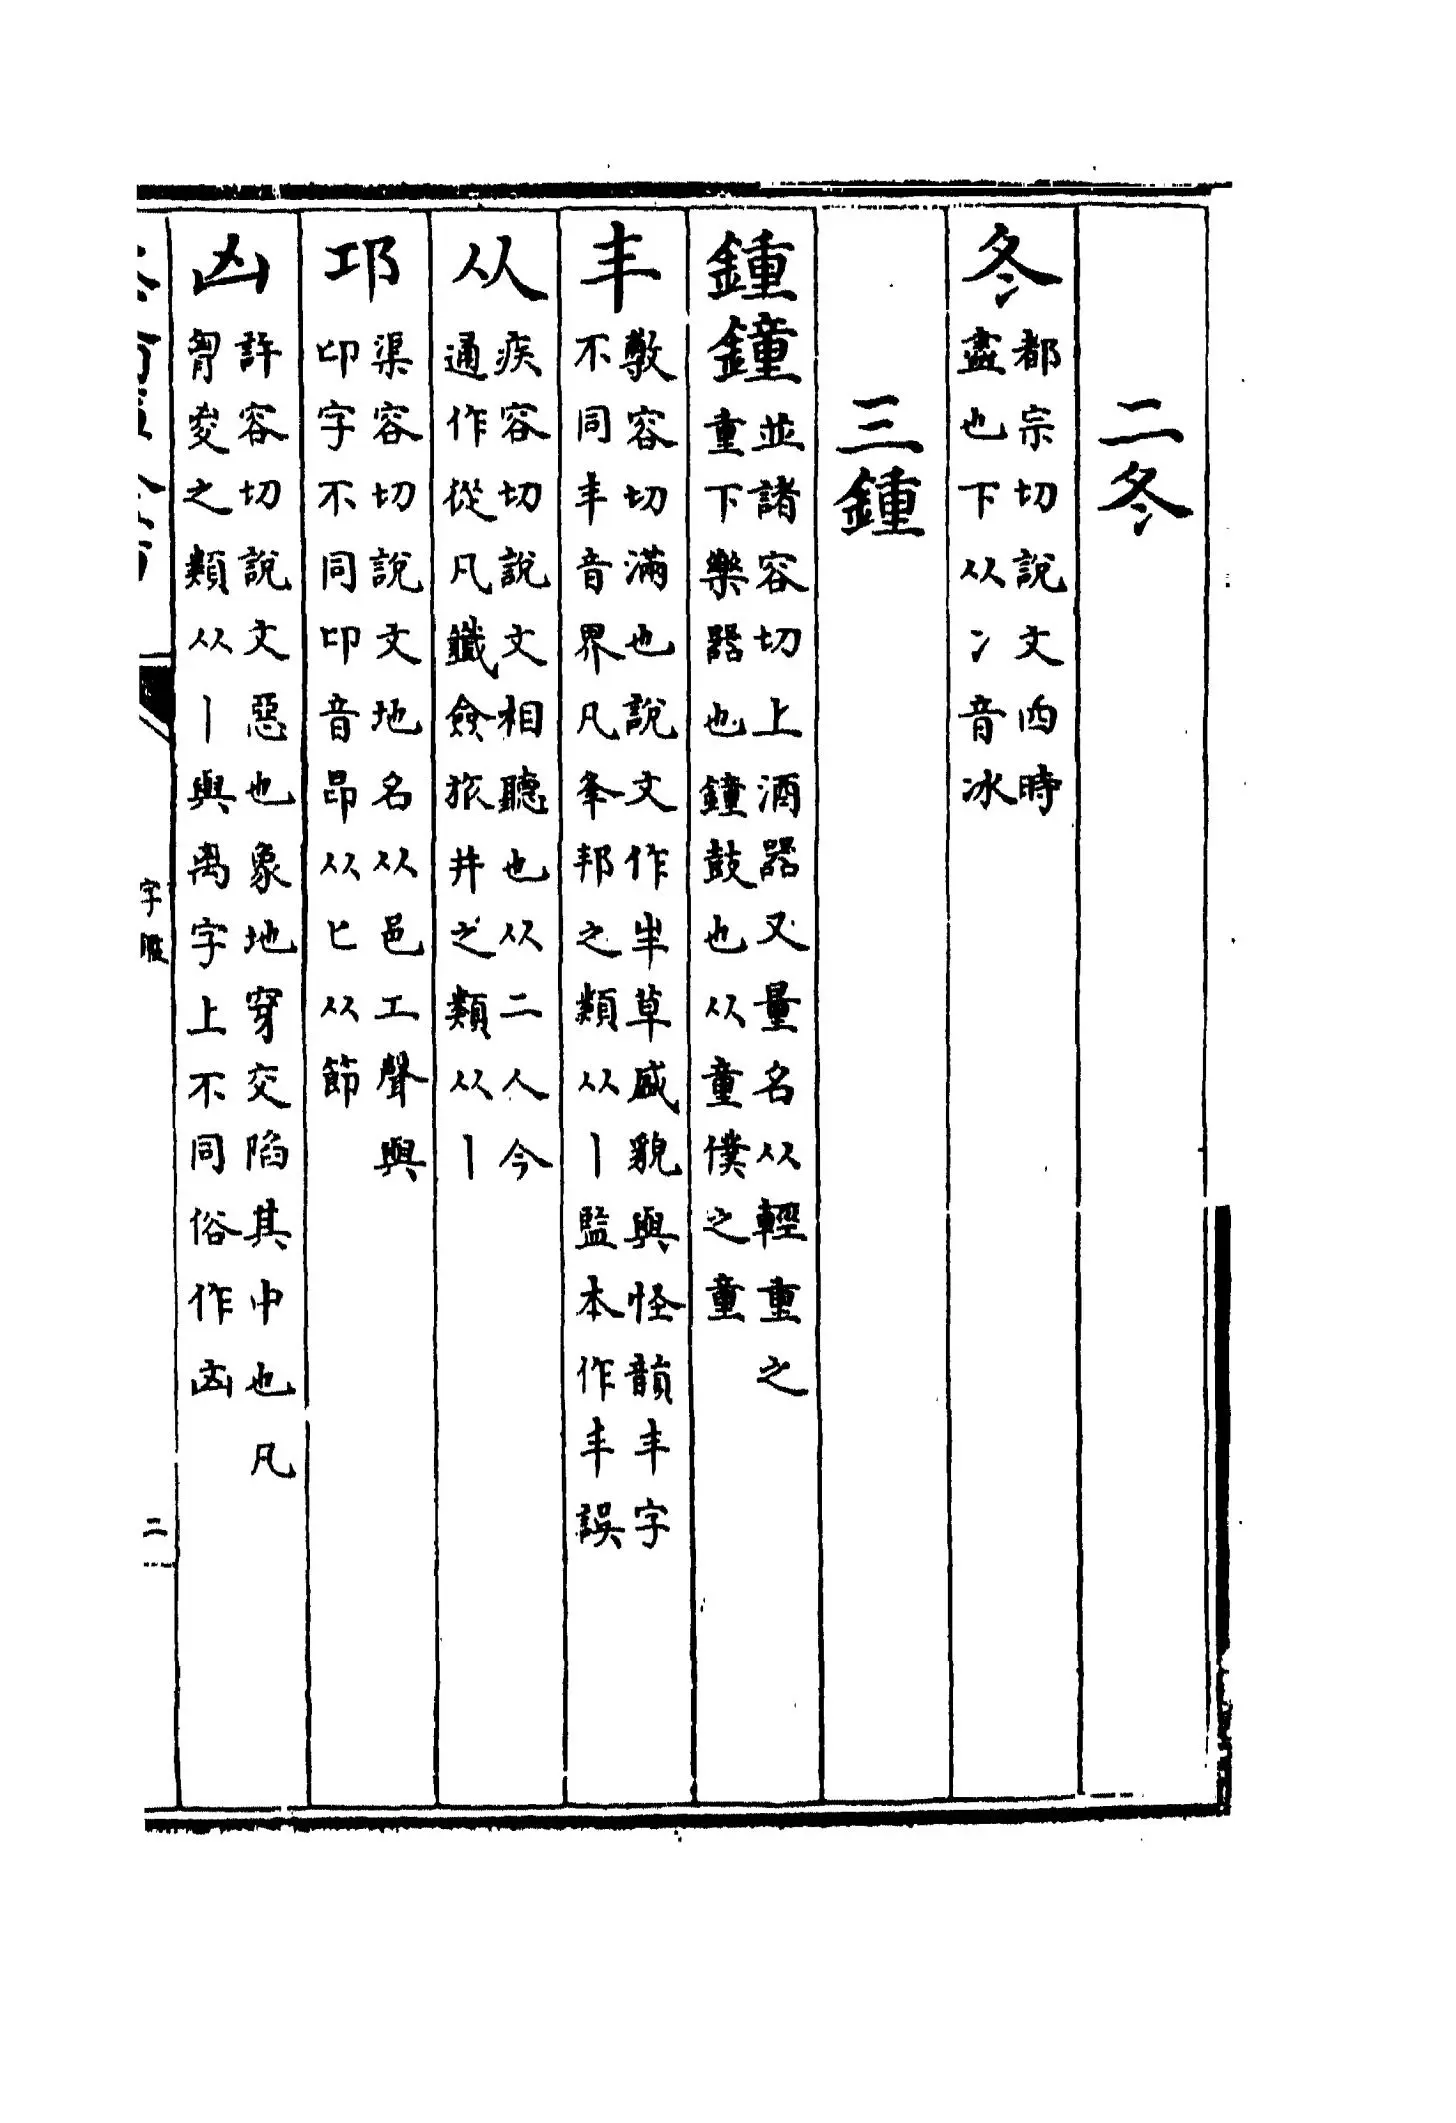 二冬
冬都宗切說文四時
盡也下从冫冫音冰
三鍾
鍾鐘並諸容切上酒器又量名从輕重之
重下樂器也鐘鼓也从童僕之童
丰敷容切滿也說文作半草盛貌與怪韻丯字
不同丯音界凡夆邦之類从丨監本作丰丰誤
从疾容切說文相聽也从二人今
通作從凡鐵僉旅幷之類从丨
邛渠容切說文地名从邑工聲與
卬字不同卬音昂昂从匕从節
凶許容切說文惡也象地穿交陷其中也凡
胷夋之類从丨與禼字上不同俗作凶
字鑑
二